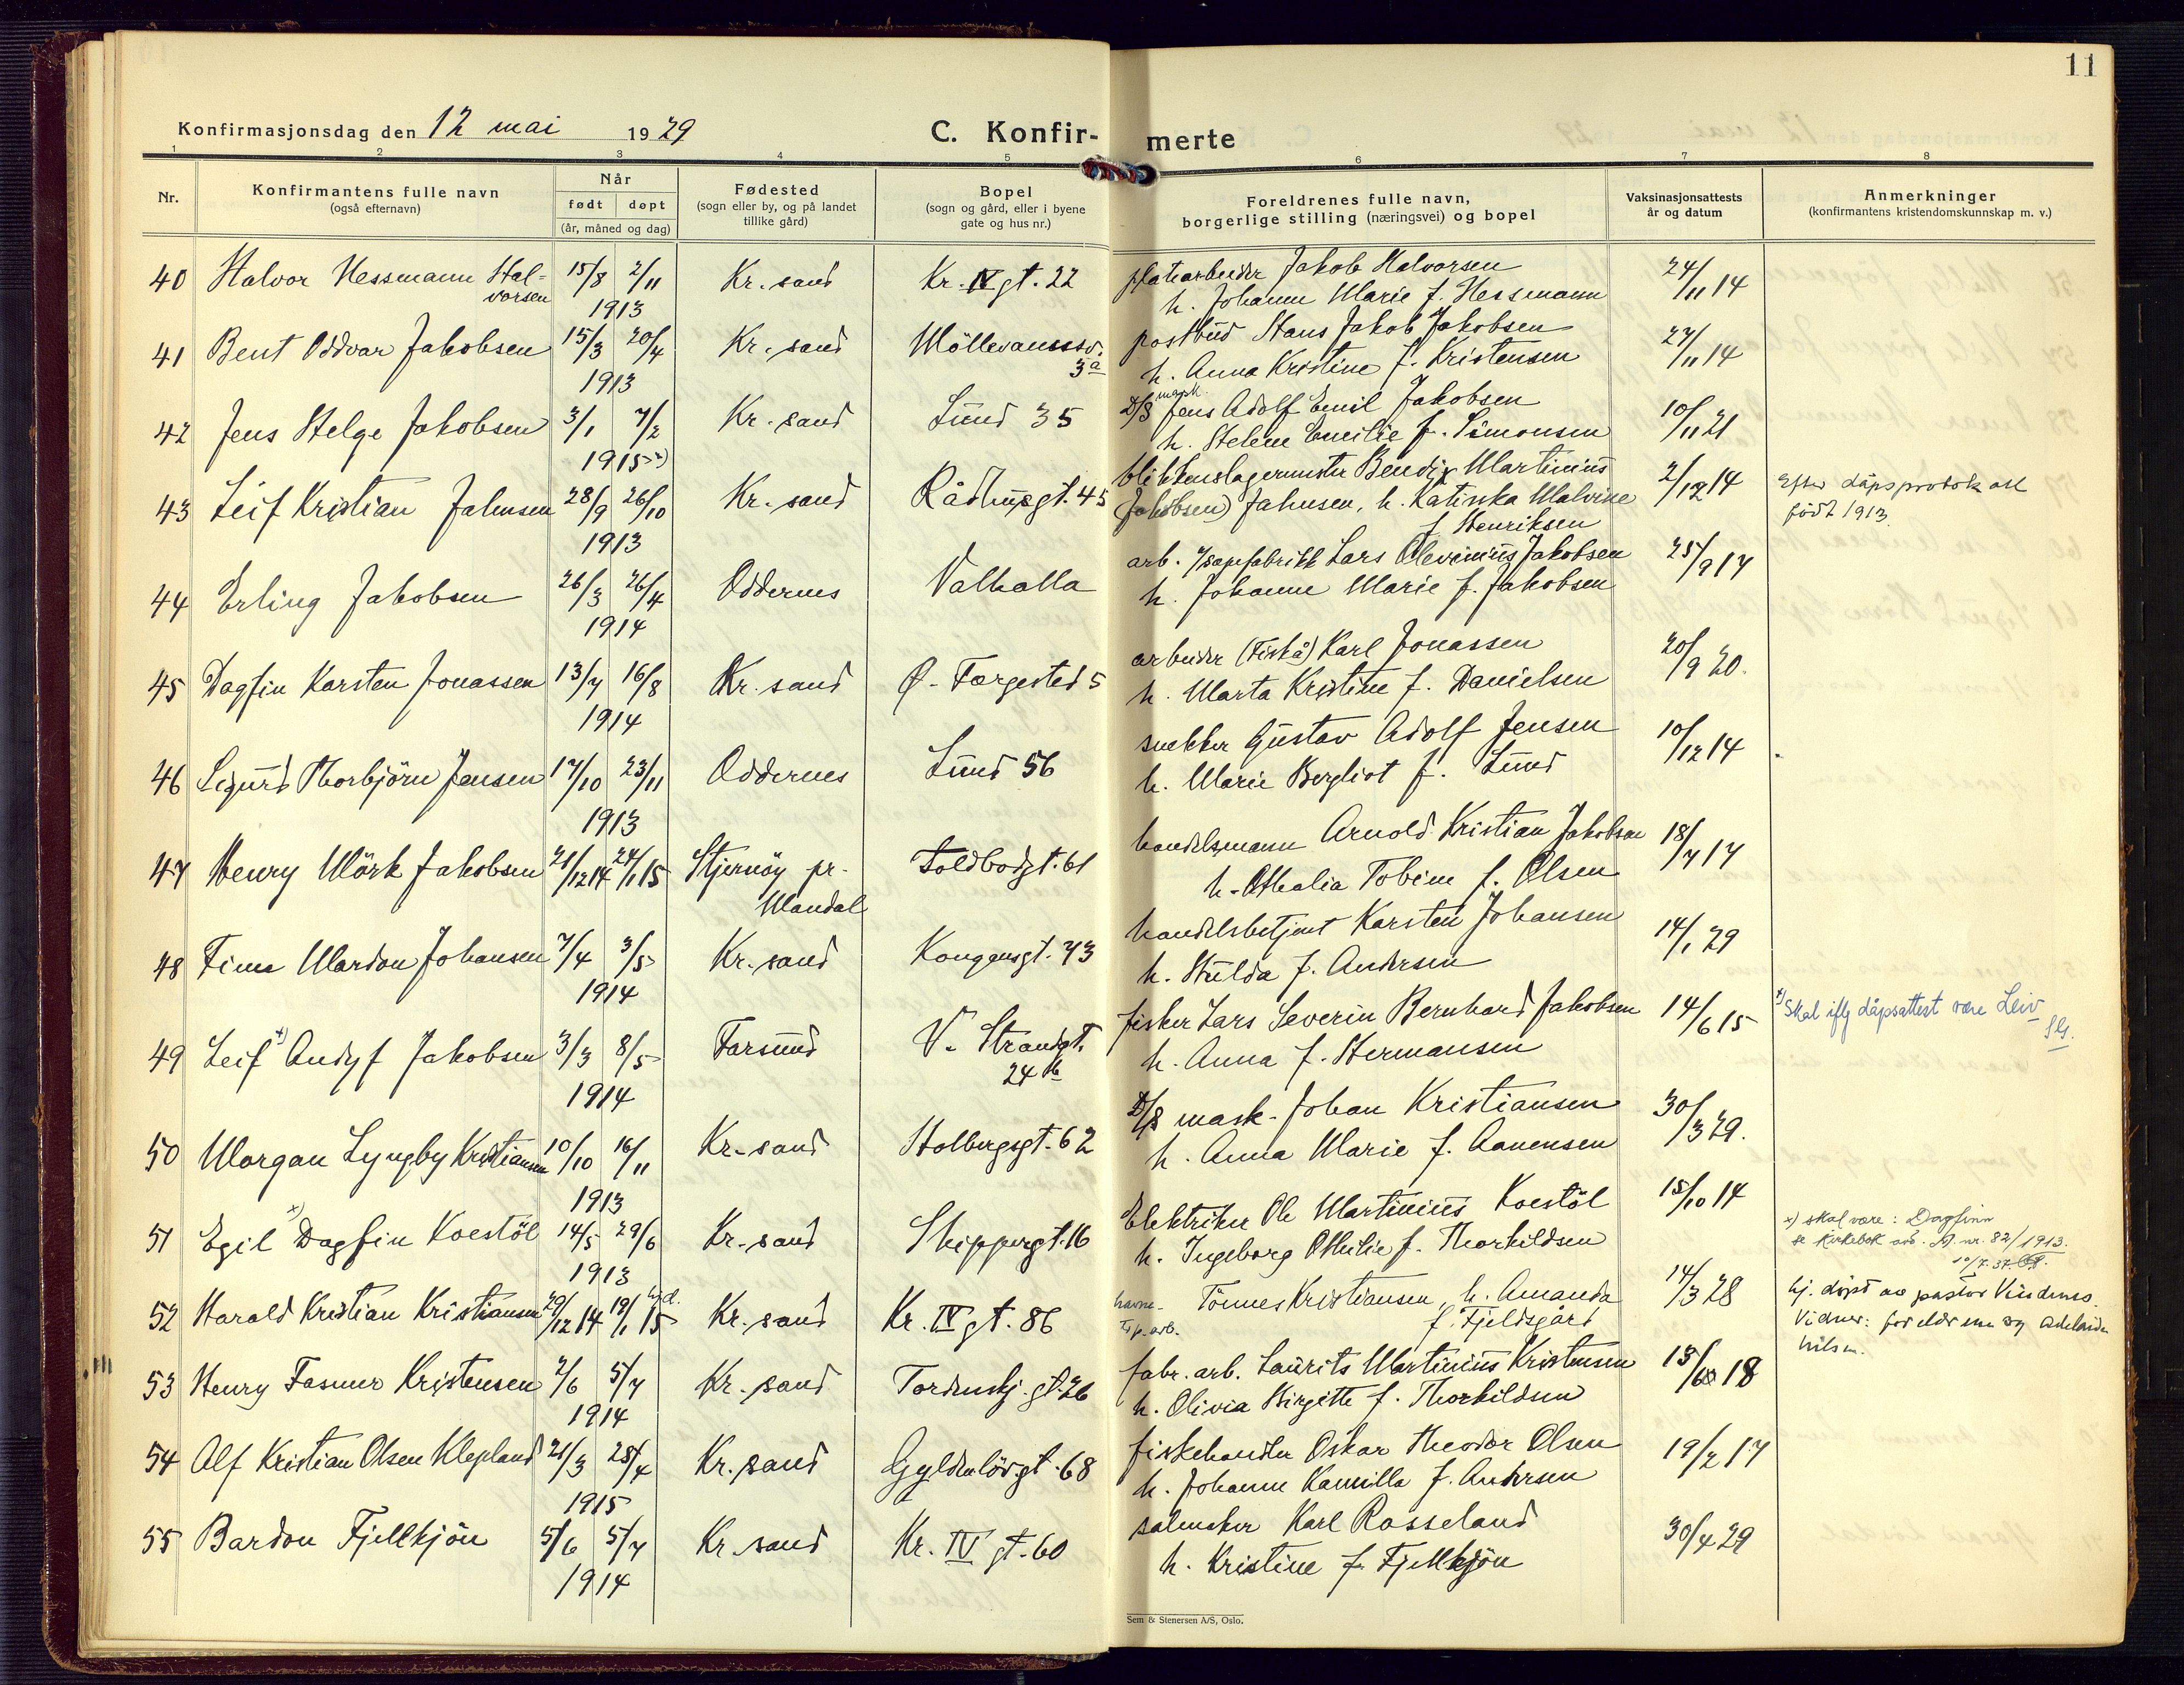 11
Konfirmasjonsdag den 12 mai 1929
C. Konfir-
merte
1 2 3 4 5 6 7 8
Nr.
Konfirmantens fulle navn
(også efternavn)
Når
født døpt
(år, måned og dag)
Fødested
(sogn eller by, og på landet
tillike gård)
Bopel
(sogn og gård, eller i byene
gate og hus nr.)
Foreldrenes fulle navn,
borgerlige stilling (næringsvei) og bopel
Vaksinasjonsattests
år og datum
Anmerkninger
(konfirmantens kristendomskunnskap m. v.)
40 Halvor Hessmann Hal- 15/8 2/11 Kr.sand Kr. IV gt. 22 Jakob Halvorsen 24/11 14
vorsen 1913 h. Johanne Marie f. Hessmann
41 Bent Oddvar Jakobsen 15/3 20/4 Kr.sand Möllevannsv. postbud Hans Jakob Jakobsen 27/11 14
1913 3a h. Anna Kristine f. Kristensen
42 Jens Helge Jakobsen 3/1 7/2 Kr.sand Lund 35 D/S mask. Jens Adolf Emil Jakobsen 10/11 21
1915 x) h. Helene Emilie f. Simonsen
43 Leif Kristian Jahnsen 28/9 26/10 Kr.sand Rådhusgt. 45 blikkenslagermester Bendix Martinius 2/12 14 Efter dåpsprotokoll
1913 (Jakobsen) Jahnsen, h. Katinka Malvine født 1913
f. Henriksen
44 Erling Jakobsen 26/3 26/4 Oddernes Valhalla arb. v/sæpefabrikk Lars Olevinius Jakobsen 25/9 17
1914 h. Johanne Marie f. Jakobsen
45 Dagfin Karsten Jonassen 13/7 16/8 Kr.sand Ø. Færgested 5 arbeider (Fiskå) Karl Jonassen 20/9 20.
1914 h. Marta Kristine f. Danielsen
46 Sigurd Thorbjörn Jensen 17/10 23/11 Oddernes Lund 56 snekker Gustav Adolf Jensen 10/12 14
1913 h. Marie Bergliot f. Lund
47 Henry Mörk Jakobsen 21/12 14 24/1 15 Stjernöy pr. Toldbodgt. 61 handelsmann Arnold Kristian Jakobsen 18/7 17
Mandal h. Othalia Tobine f. Olsen
48 Finn Mardon Johansen 7/4 3/5 Kr.sand Kongensgt. 73 handelsbetjent Karsten Johansen 14/1 29
1914 h. Hulda f. Andersen
49 Leif x) Andyf Jakobsen 3/3 8/5 Farsund V. Strandgt. fisker Lars Severin Bernhard Jakobsen 14/6 15 x) Skal iflg dåpsattest være Leiv
1914 24 b h. Anna f. Hermansen
50 Morgan Lyngby Kristiansen 10/10 16/11 Kr.sand Holbergsgt. 62 D/S mask. Johan Kristiansen 30/3 29.
1913 h. Anna Marie f. Aanensen
51 Egil x) Dagfin Koestöl 14/5 29/6 Kr.sand Skippergt. 16 Elektriker Ole Martinius Koestöl 15/10 14 x) skal være: Dagfinn
1913 h. Ingeborg Othilie f. Thorkildsen se kirkebok avd. A. nr. 82/1913.
10/7. 37.
52 Harald Kristian Kristiansen 29/12 14 19/1 15 hjd. Kr.sand Kr. IV gt. 86 havne- Tönnes Kristiansen, h. Amanda 14/3 28 hj. döpt av pastor
f. Fjeldsgård Vidner: foreldrene og
53 Henry Kristensen 2/6 5/7 Kr.sand Tordenskj. gt. 26 fabr. arb. Laurits Martinius Kristensen 15/6 18
1914 h. Olivia Birgitte f. Thorkildsen
54 Alf Kristian Olsen Klepland 21/3 25/4 Kr.sand Gyldenlövgt. 68 fiskehandler Oskar Theodor Olsen 19/2 17
1915 h. Johanne Kamilla f. Andersen
55 Bardon Fjellkjön 5/6 5/7 Kr.sand Kr. IV gt. 60 salmaker Karl Rosseland 30/4 29
1914 h. Kristine f. Fjellkjön
Sem & Stenersen A/S, Oslo.